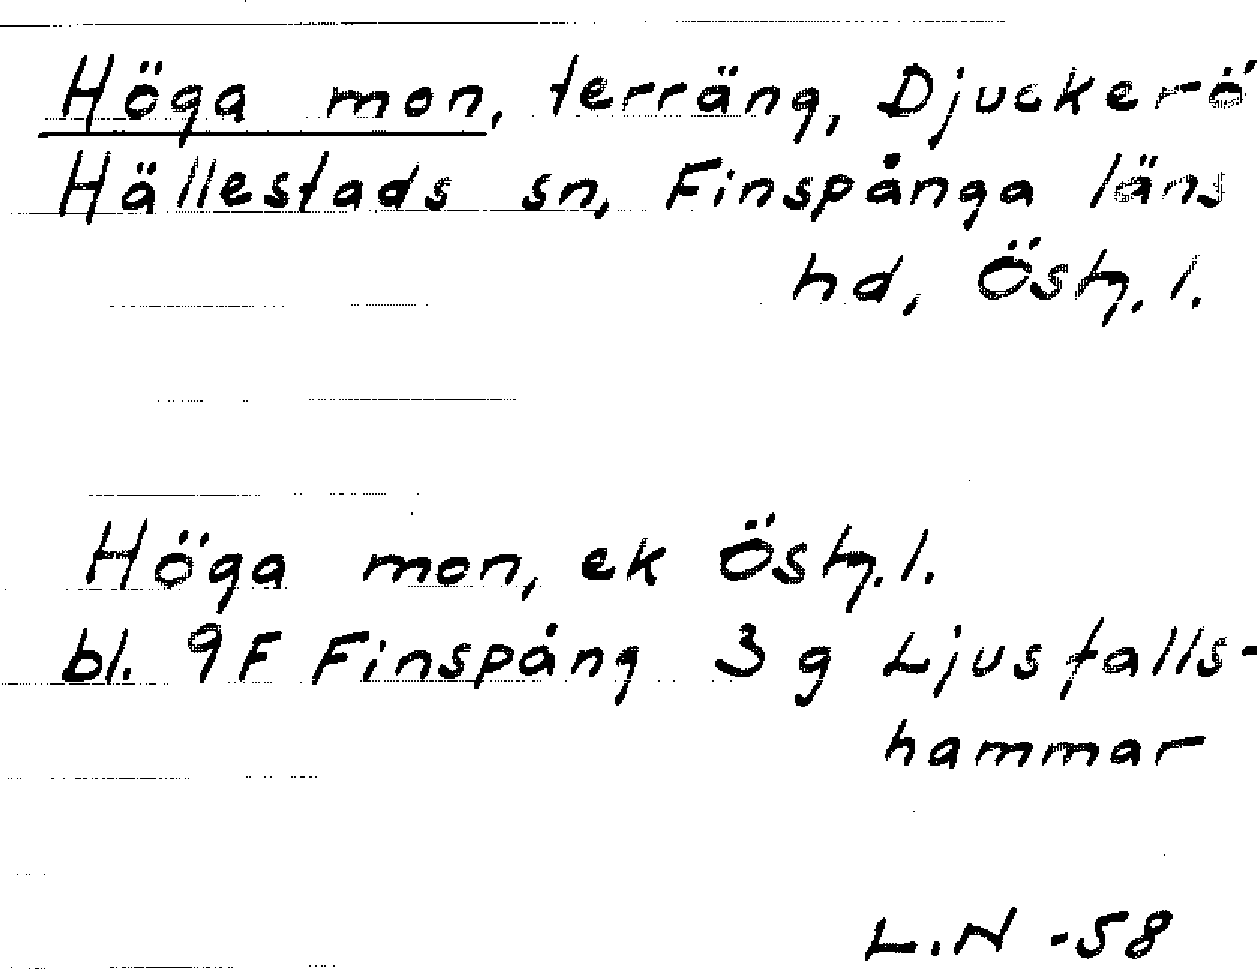 Höga mon, terräng, Djuckerö
Hällestads sn, Finspånga läns
hd, Östg. l.
Höga mon, ek Östg. l.
bl. 9F Finspång 3 g Ljusfalls-
hammar
L.N -58